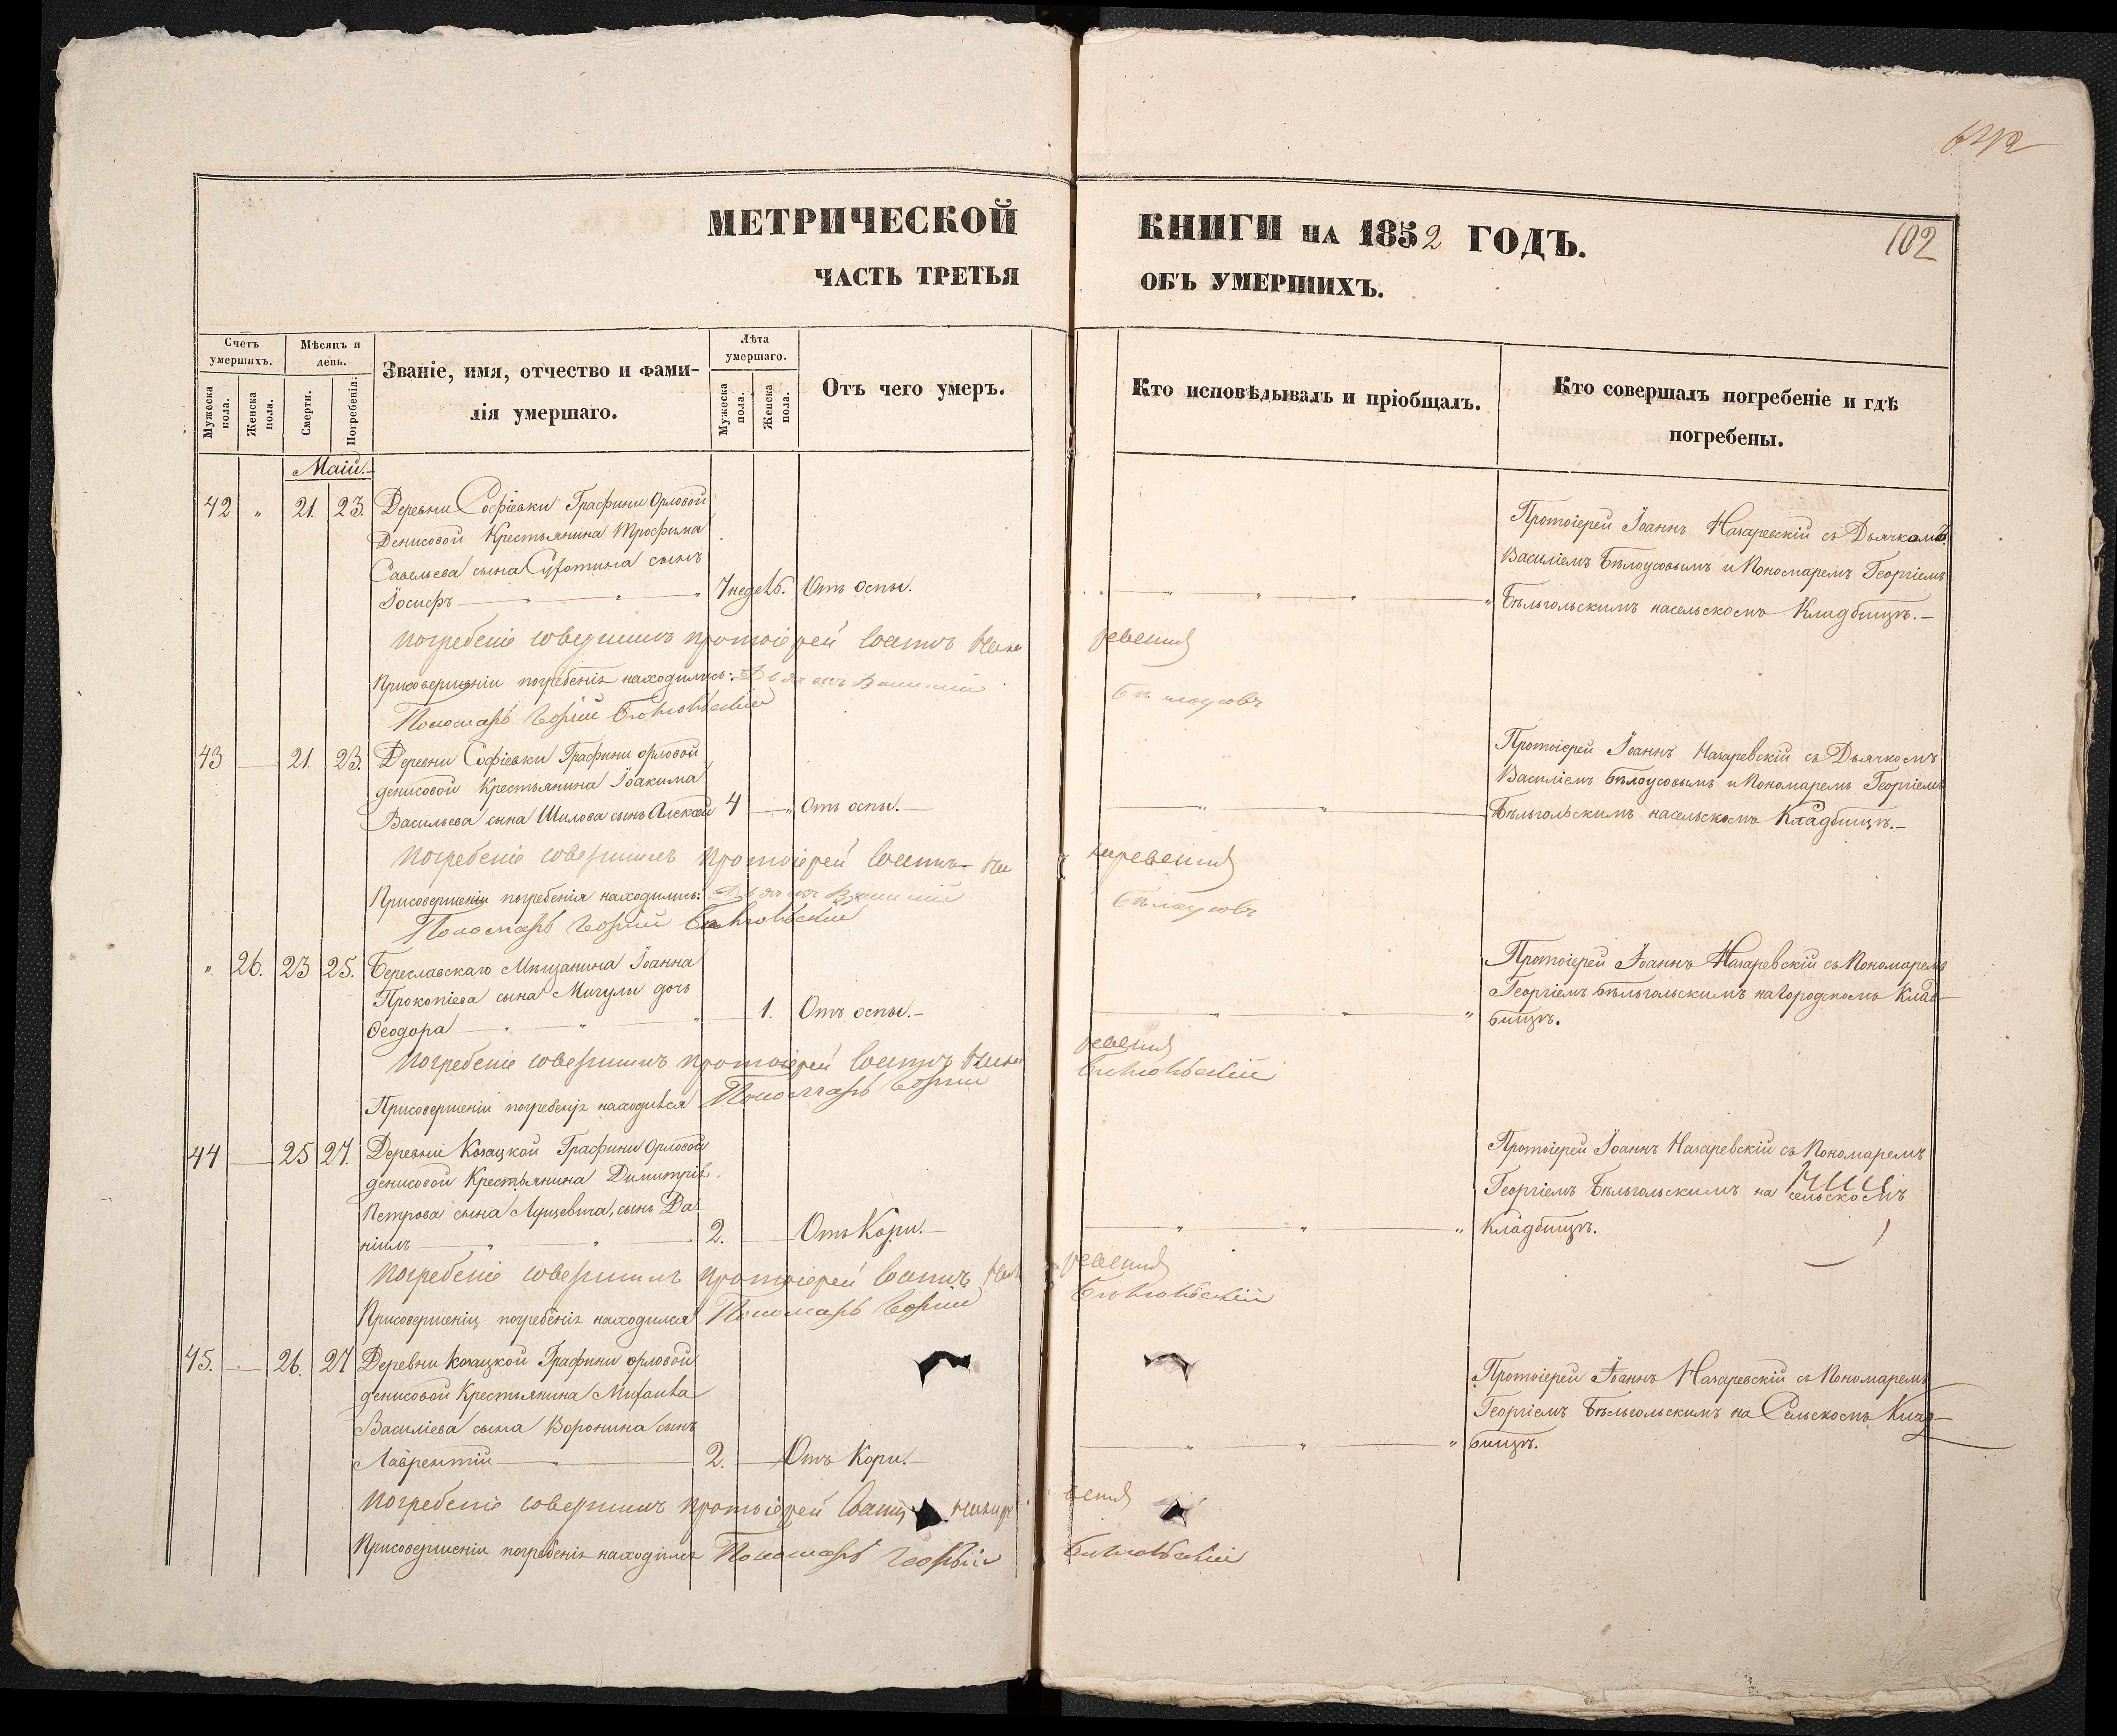 МЕТРИЧЕСКОЙ КНИГИ НА 1852 ГОДЪ.
102
ЧАСТЬ ТРЕТЬЯ ОБЪ УМЕРШИХЪ.
Счетъ умершихъ.
Мужеска пола.
Женска пола.
Мѣсяцъ и день.
Смерти.
Погребенія.
Званіе, имя, отчество и фами-
лія умершаго.
Лѣта умершаго.
Мужеска пола.
Женска пола.
Отъ чего умеръ.
Кто исповѣдывалъ и пріобщалъ.
Кто совершалъ погребеніе и гдѣ
погребены.
Маій.
42 " 21. 23. Деревни Софіевки Графини Орловой
Денисовой Крестьянина Трофима
Савельева сына сынъ
Іосифъ 7 недель. Отъ оспы.
Протоіерей Іоаннъ Назаревскій съ Дьячкомъ
Василіемъ Бѣлоусовымъ и Пономаремъ Георгіемъ
Бѣльгольскимъ на сельскомъ Кладбищѣ.
Погребеніе совершилъ протоіерей Іоаннъ Назаревскій
При совершеніи погребенія находились: Дьячекъ Василій Бѣлоусовъ
Пономарь Георгій Бѣльгольскій
43 21. 23. Деревни Софіевки Графини орловой
денисовой Крестьянина Іоакима
Васильева сына Шилова сынъ Алексей 4 Отъ оспы.
Протоіерей Іоаннъ Назаревскій съ Дьячкомъ
Василіемъ Бѣлоусовымъ и Пономаремъ Георгіемъ
Бѣльгольскимъ на сельскомъ Кладбищѣ.
Погребеніе совершилъ протоіерей Іоаннъ Назаревскій
При совершеніи погребенія находились: Дьячекъ Василій Бѣлоусовъ
Пономарь Георгій Бѣльгольскій
" 26. 23 25. Береславскаго Мѣщанина Іоанна
Прокопіева сына Мигулы дочь
Ѳеодора 1. Отъ оспы.
Протоіерей Іоаннъ Назаревскій съ Пономаремъ
Георгіемъ Бѣльгольскимъ на Городскомъ Клад-
бищѣ.
Погребеніе совершилъ протоіерей Іоаннъ Назаревскій
При совершеніи погребенія находился Пономарь Георгій Бѣльгольскій
44 25 27. Деревни Козацкой Графини Орловой
денисовой Крестьянина Димитрія
Петрова сына Луцевича, сынъ Да-
ніилъ 2. Отъ Кори.
Протоіерей Іоаннъ Назаревскій съ Пономаремъ
Георгіемъ Бѣльгольскимъ на сельскомъ
Кладбищѣ.
Погребеніе совершилъ протоіерей Іоаннъ Назаревскій
При совершеніи погребенія находился Пономарь Георгій Бѣльгольскій
45. 26. 27 Деревни Козацкой Графини орловой
денисовой Крестьянина Михаила
Василіева сына Воронина сынъ
Лаврентій 2. Отъ Кори.
Протоіерей Іоаннъ Назаревскій съ Пономаремъ
Георгіемъ Бѣльгольскимъ на Сельскомъ Клад-
бищѣ.
Погребеніе совершилъ протоіерей Іоаннъ Назаревскій
При совершеніи погребенія находился Пономарь Георгій Бѣльгольскій